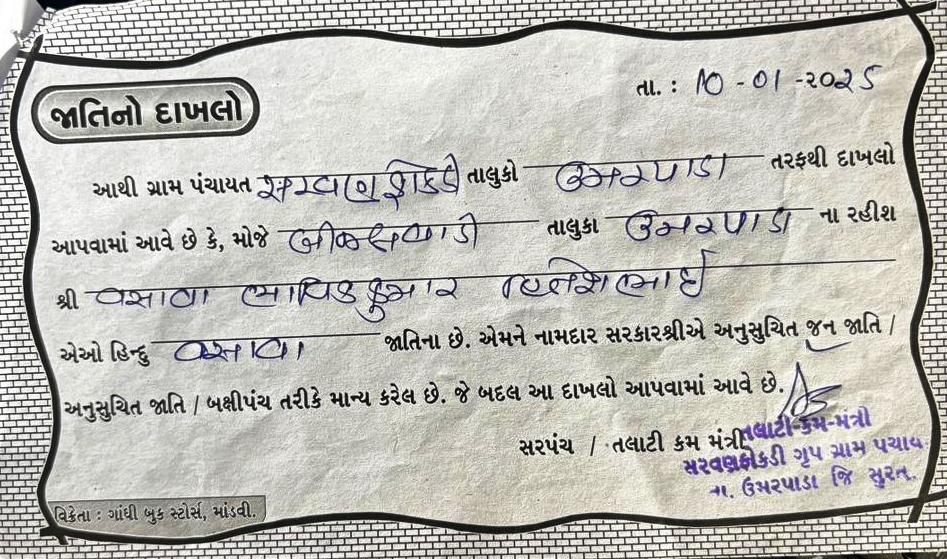 તા. : 10-01-૨૦૨5
જાતિનો દાખલો
આથી ગ્રામ પંચાયત સરવણફોકડી તાલુકો ઉમરપાડા તરફથી દાખલો
આપવામાં આવે છે કે, મોજે તાલુકા ઉમરપાડા ના રહીશ
શ્રી વસાવા ભાવિકકુમાર હિતેશભાઈ
એઓ હિન્દુ વસાવા જાતિના છે. એમને નામદાર સરકારશ્રીએ અનુસુચિત જન જાતિ /
અનુસુચિત જાતિ / બક્ષીપંચ તરીકે માન્ય કરેલ છે. જે બદલ આ દાખલો આપવામાં આવે છે.
સરપંચ / તલાટી કમ મંત્રી
તલાટી-કમ-મંત્રી
સરવણફોકડી ગૃપ ગ્રામ પંચાય
તા. ઉમરપાડા જિ સુરત.
વિક્રેતા : ગાંધી બુક સ્ટોર્સ, માંડવી.